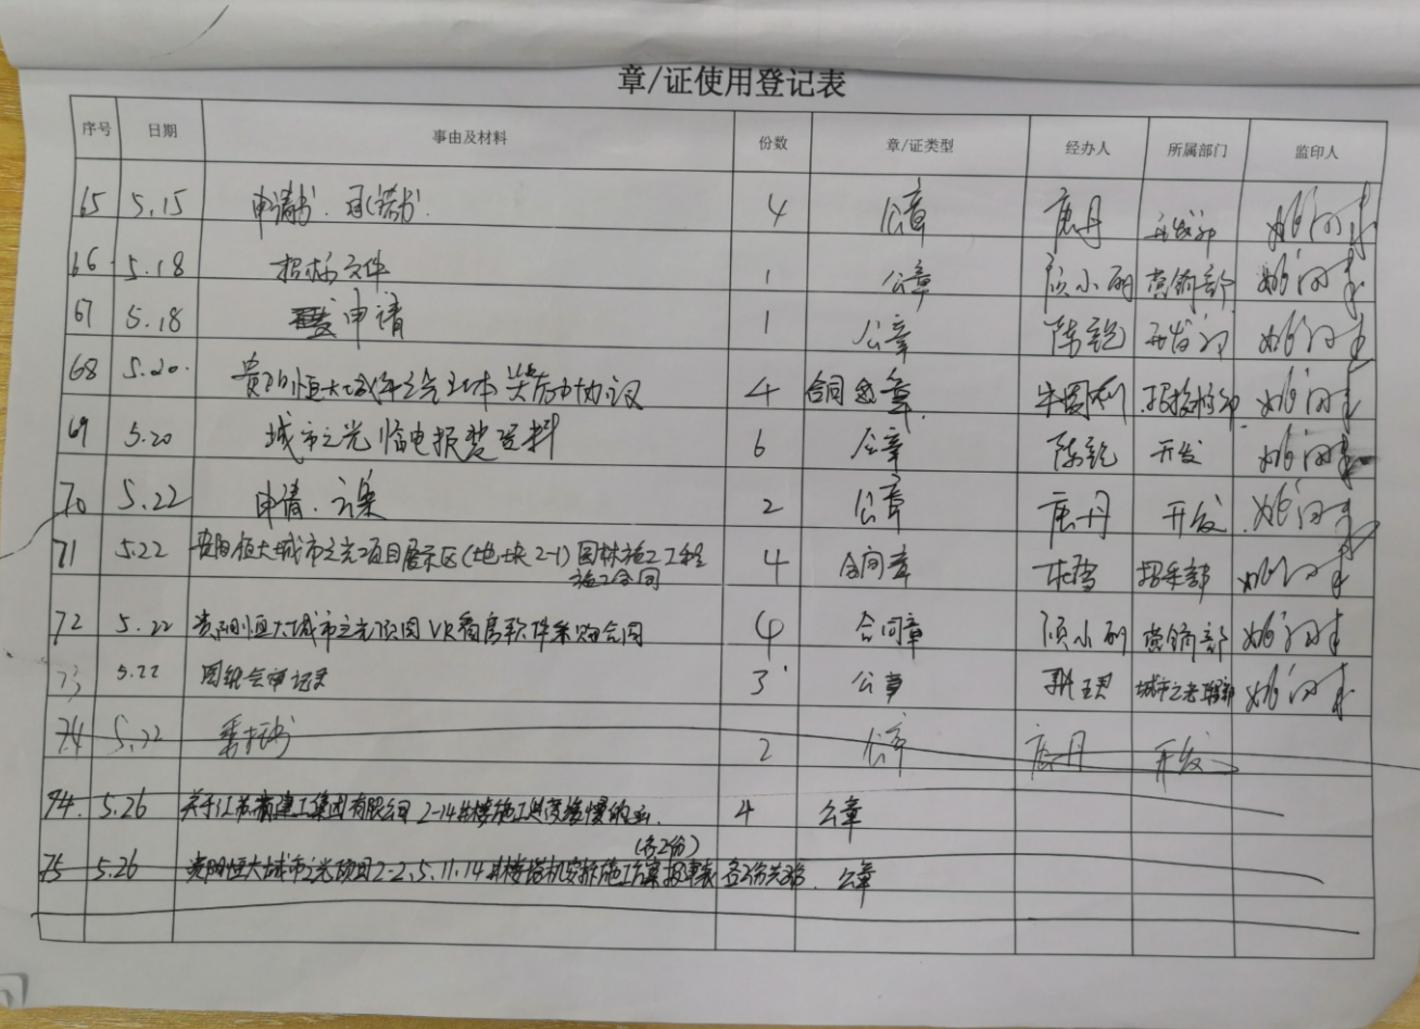 章/证使用登记表
序号 日期 事由及材料 份数 章/证类型 经办人 所属部门 监印人
65 5.15 申请书、承诺书. 4 公章 唐丹 开发部
66 5.18 招标文件 1 公章 顾小丽 营销部
67 5.18 申请 1 公章 陈锐 开发部
68 5.20. 贵阳恒大城市之光 协议 4 合同 章
69 5.20 城市之光临电报装资料 6 公章 陈锐 开发
70 5.22 申请、方案 2 公章 唐丹 开发
71 5.22 贵阳恒大城市之光项目展示区(地块2-1)园林施工工程 4 合同章 杜雪 招采部
施工合同
72 5.22 贵阳恒大城市之光项目VR看房软件采购合同 4 合同章 顾小丽 营销部
73 5.22 图纸会审记录 3 公章 城市之光
74 5.22 委托书 2 公章 唐丹 开发
74. 5.26 关于江苏省建工集团有限公司2-14#楼施工进度缓慢的 4 公章
(各2份)
75 5.26 贵阳恒大城市之光项目2-2、5、11、14#楼塔机安拆施工方案报审表 各2份共8份. 公章